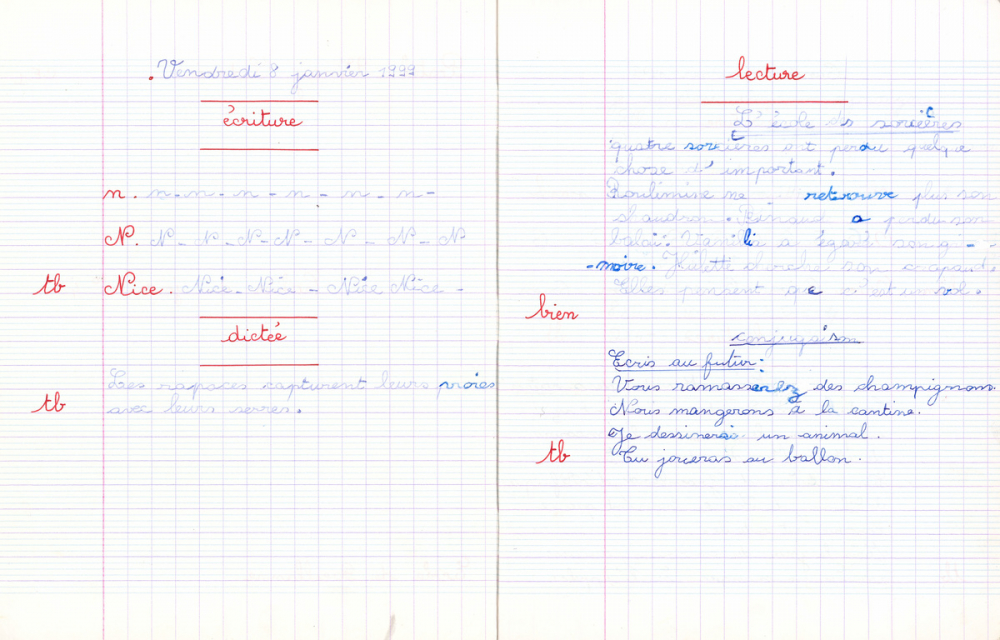 Vendredi 8 janvier 1999
écriture
n. n - n - n - n - n - n -
N. N - N - N - N - N - N - N
tb Nice. Nice - Nice - Nice Nice -
dictée
Les rapaces capturent leurs proies
tb avec leurs serres.
lecture
L'école des sorcières
quatre sorcières ont perdu quelque
chose d'important.
ne retrouve plus son
chaudron. a perdu son
balai. a égaré son gri-
-moire. cherche son crapaud.
Elles pensent que c'est un vol.
bien
conjugaison
Ecris au futur:
Vous ramasserez des champignons.
Nous mangerons à la cantine.
Je dessinerai un animal.
tb Tu joueras au ballon.